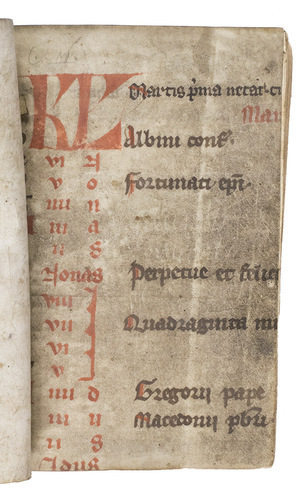 KL Martis p̄ma necat
Mar
Albini conf̄
vi A
v o Fortunati ep̄i
iiii n
iii a
ii s
Nonas Perpetue et felici
viii
vii Quadraginta mi
vi
v
iiii d Gregorii pape
iii u Macedonii pb̄ri
ii s
Idus